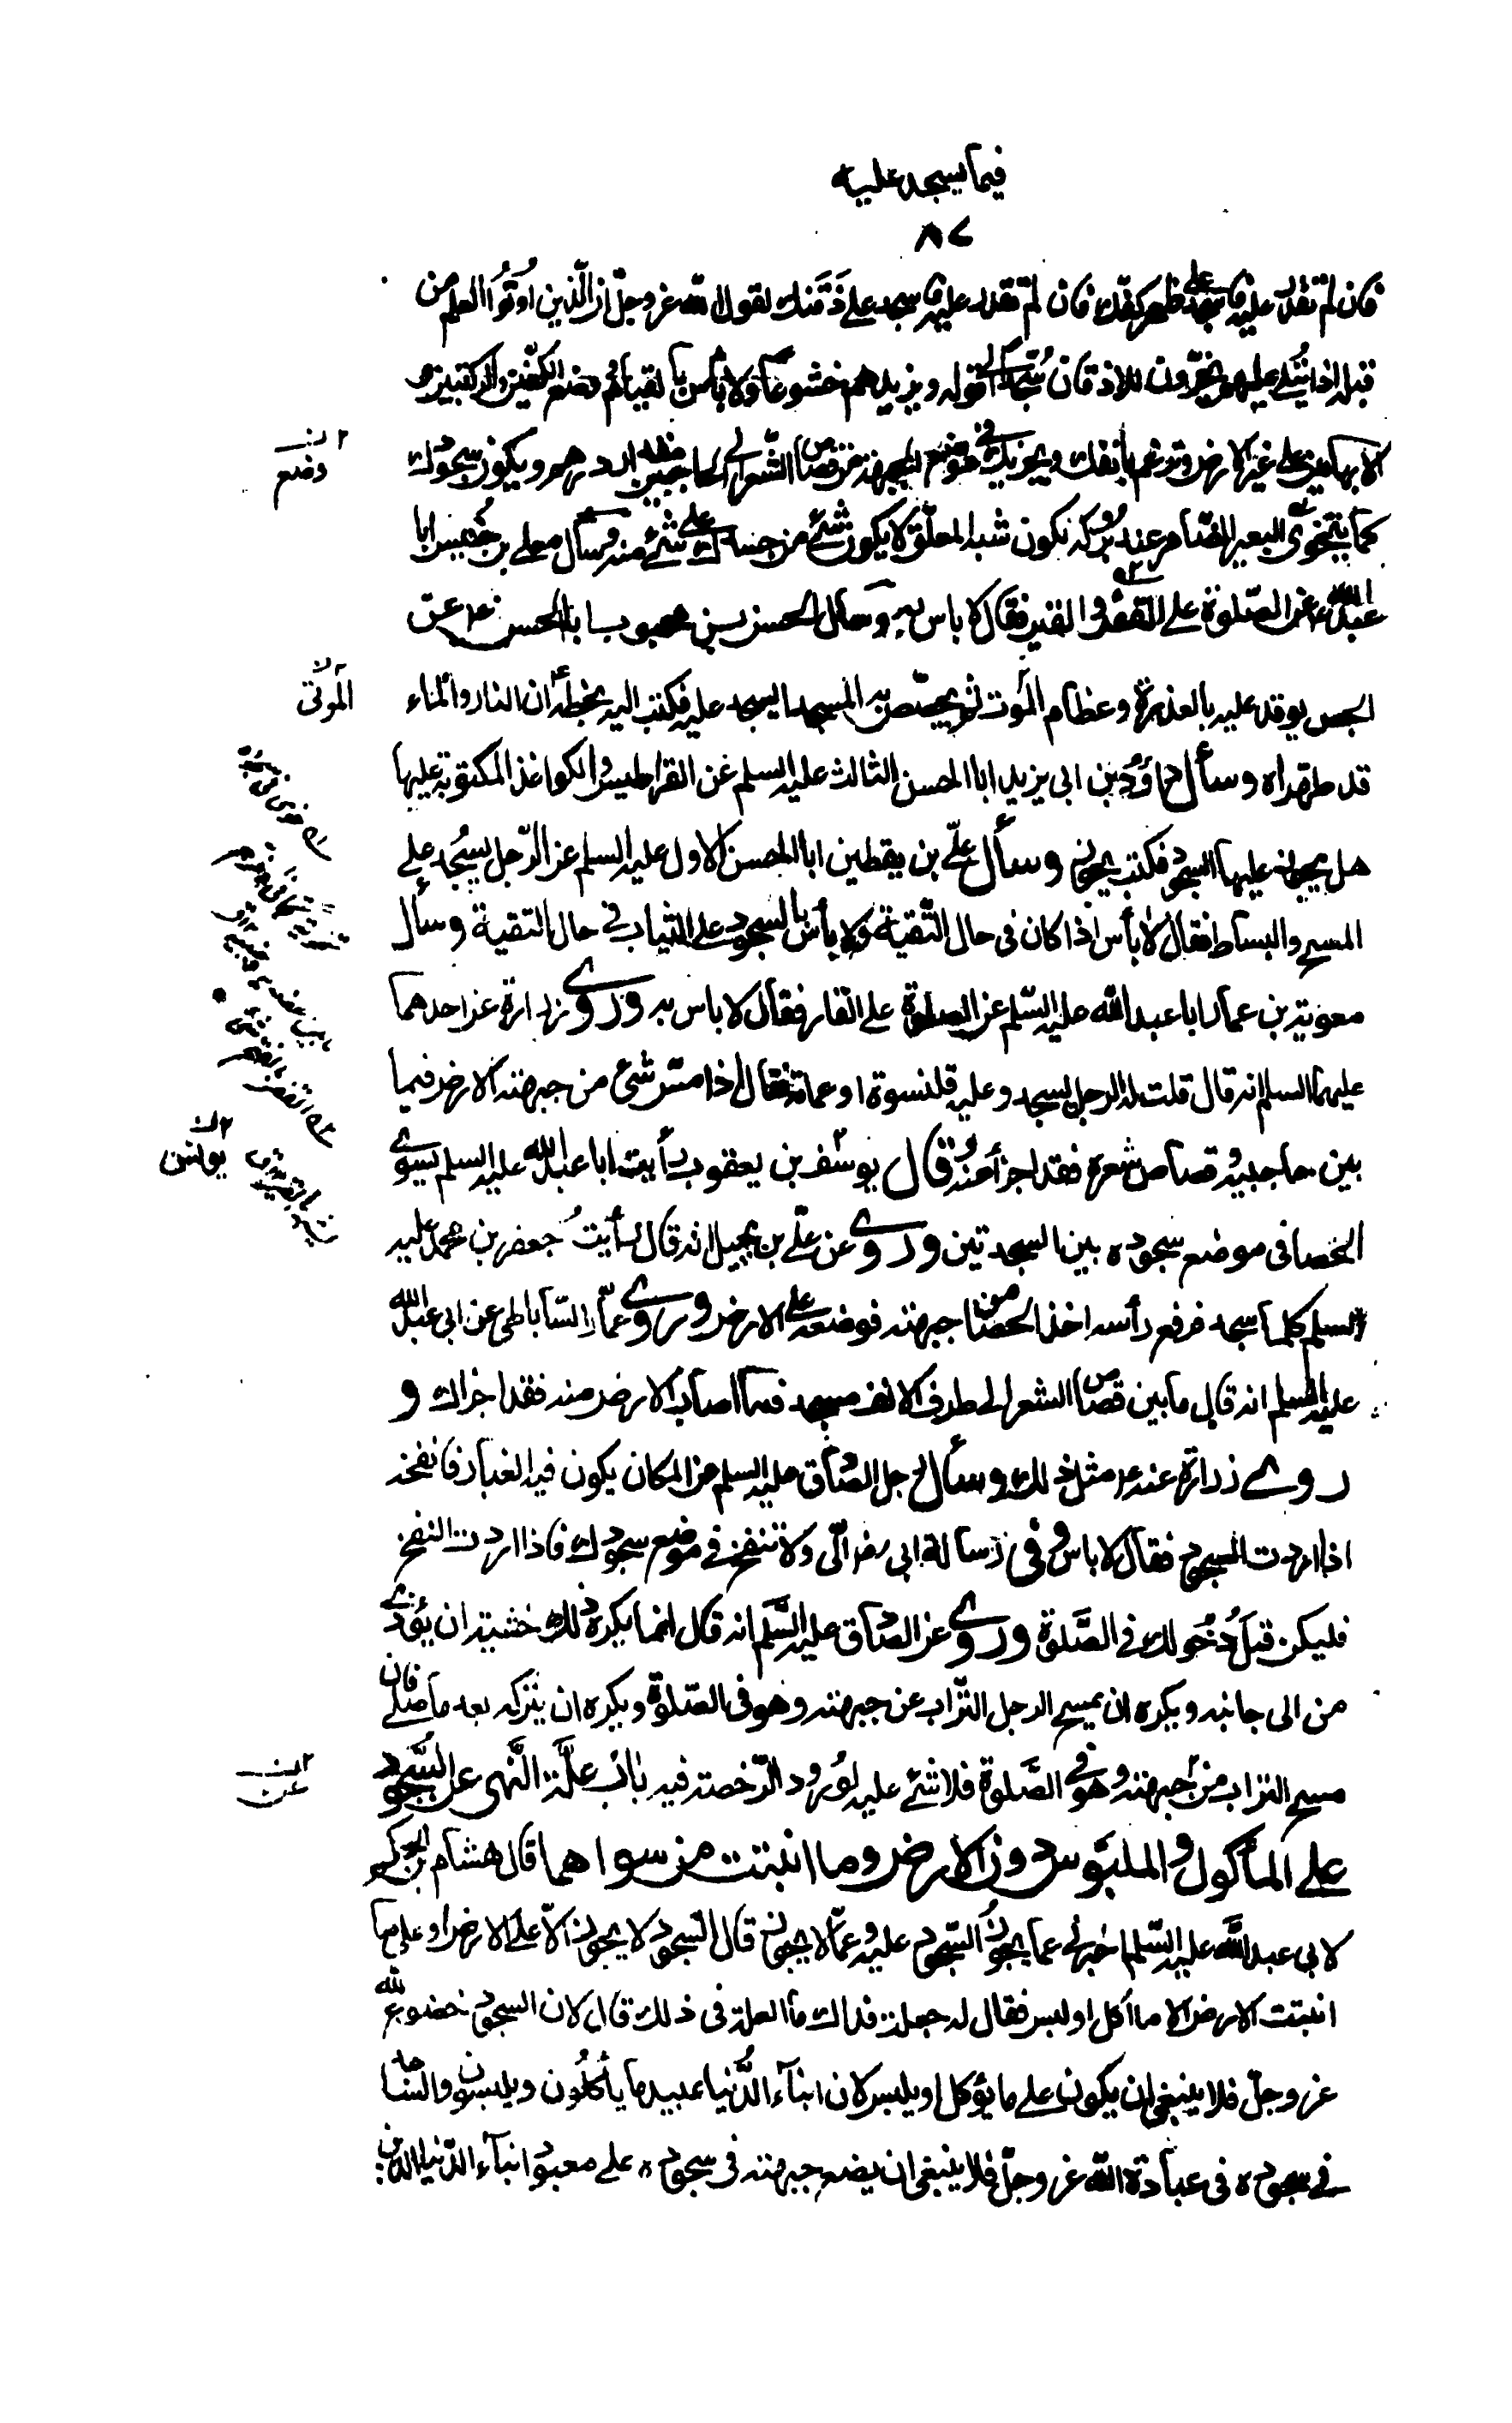 فيما يسجد عليه
٨٧
فان لم تقدر عليه فاسجد على ظهر كفك فان لم تقدر عليه فاسجد على ذقنك لقول الله عز وجل ان الذين اوتوا العلم من
قبله اذا يتلى عليهم يخرون للاذقان سجدا الى قوله ويزيدهم خشوعا ولا باس بالقيام و وضع الكفين والركبتين و
الابهامين على غير الارض وترغم بانفك ويجزيك في موضع الجبهة من قصاص الشعر الى الحاجبين مقدار درهم ويكون سجودك
كما يتخوى البعير الضامر عند بروكه تكون شبه المعلق لا يكون شئ من جسدك على شئ منه وسأل معلى بن خنيس ابا
عبد الله ع عن الصلوة على القفر والقير فقال لا باس به وسال الحسن بن محبوب ابا الحسن ع عن
الجص يوقد عليه بالعذرة وعظام الموت ثم يجصص به المسجد ايسجد عليه فكتب اليه بخطه ان النار والماء
قد طهراه وسأل داود بن ابى يزيد ابا الحسن الثالث عليه السلم عن القراطيس والكواغذ المكتوبة عليها
هل يجوز عليها السجود فكتب يجوز وسأل على بن يقطين ابا الحسن الاول عليه السلم عن الرجل يسجد على
المسح والبساط فقال لا بأس اذا كان فى حال التقية ولا بأس بالسجود على الثياب في حال التقية وسأل
معوية بن عمار ابا عبد الله عليه السلم عن الصلوة على القار فقال لا باس به وروى زرارة عن احدهما
عليهما السلم انه قال قلت له الرجل يسجد وعليه قلنسوة او عمامة فقال اذا مس شئ من جبهته الارض فيما
بين حاجبيه وقصاص شعره فقد اجزأ عنه وقال يوسف بن يعقوب رأيت ابا عبد الله عليه السلم يسوى
الحصا فى موضع سجوده بين السجدتين وروى عن على بن بجيل انه قال رأيت جعفر بن محمد عليه
السلم كلما سجد فرفع رأسه اخذ الحصا من جبهته فوضعه على الارض وروى عمار الساباطى عن ابى عبد الله
عليه السلم انه قال ما بين قصاص الشعر الى طرف الانف مسجد فما اصاب الارض منه فقد اجزاك و
روى زرارة عنه ع مثل ذلك وسأل رجل الصادق عليه السلم عن المكان يكون فيه الغبار فانفخه
اذا اردت السجود فقال لا باس وفى رسالة ابى رض الى ولا تنفخ في موضع سجودك فاذا اردت النفخ
فليكن قبل دخولك فى الصلوة وروى عن الصادق عليه السلم انه قال انما يكره ذلك خشية ان يؤذى
من الى جانبه ويكره ان يمسح الرجل التراب عن جبهته وهو فى الصلوة ويكره ان يتركه بعد ما صلى فان
مسح التراب من جبهته وهو في الصلوة فلا شئ عليه لورود الرخصة فيه باب علة النهى عن السجود
على المأكول والملبوس دون الارض وما انبتت من سواهما قال هشام بن الحكم
لابى عبد الله عليه السلم اخبرنى عما يجوز السجود عليه وعما لا يجوز قال السجود لا يجوز الا على الارض او على ما
انبتت الارض الا ما اكل او لبس فقال له جعلت فداك ما العلة فى ذلك قال لان السجود خضوع لله
عز وجل فلا ينبغى ان يكون على ما يؤكل او يلبس لان ابناء الدنيا عبيد ما يأكلون ويلبسون والساجد
في سجوده فى عبادة الله عز وجل فلا ينبغى ان يضع جبهته فى سجوده على معبود ابناء الدنيا الذين
وضع
الموتى
يونس
عن